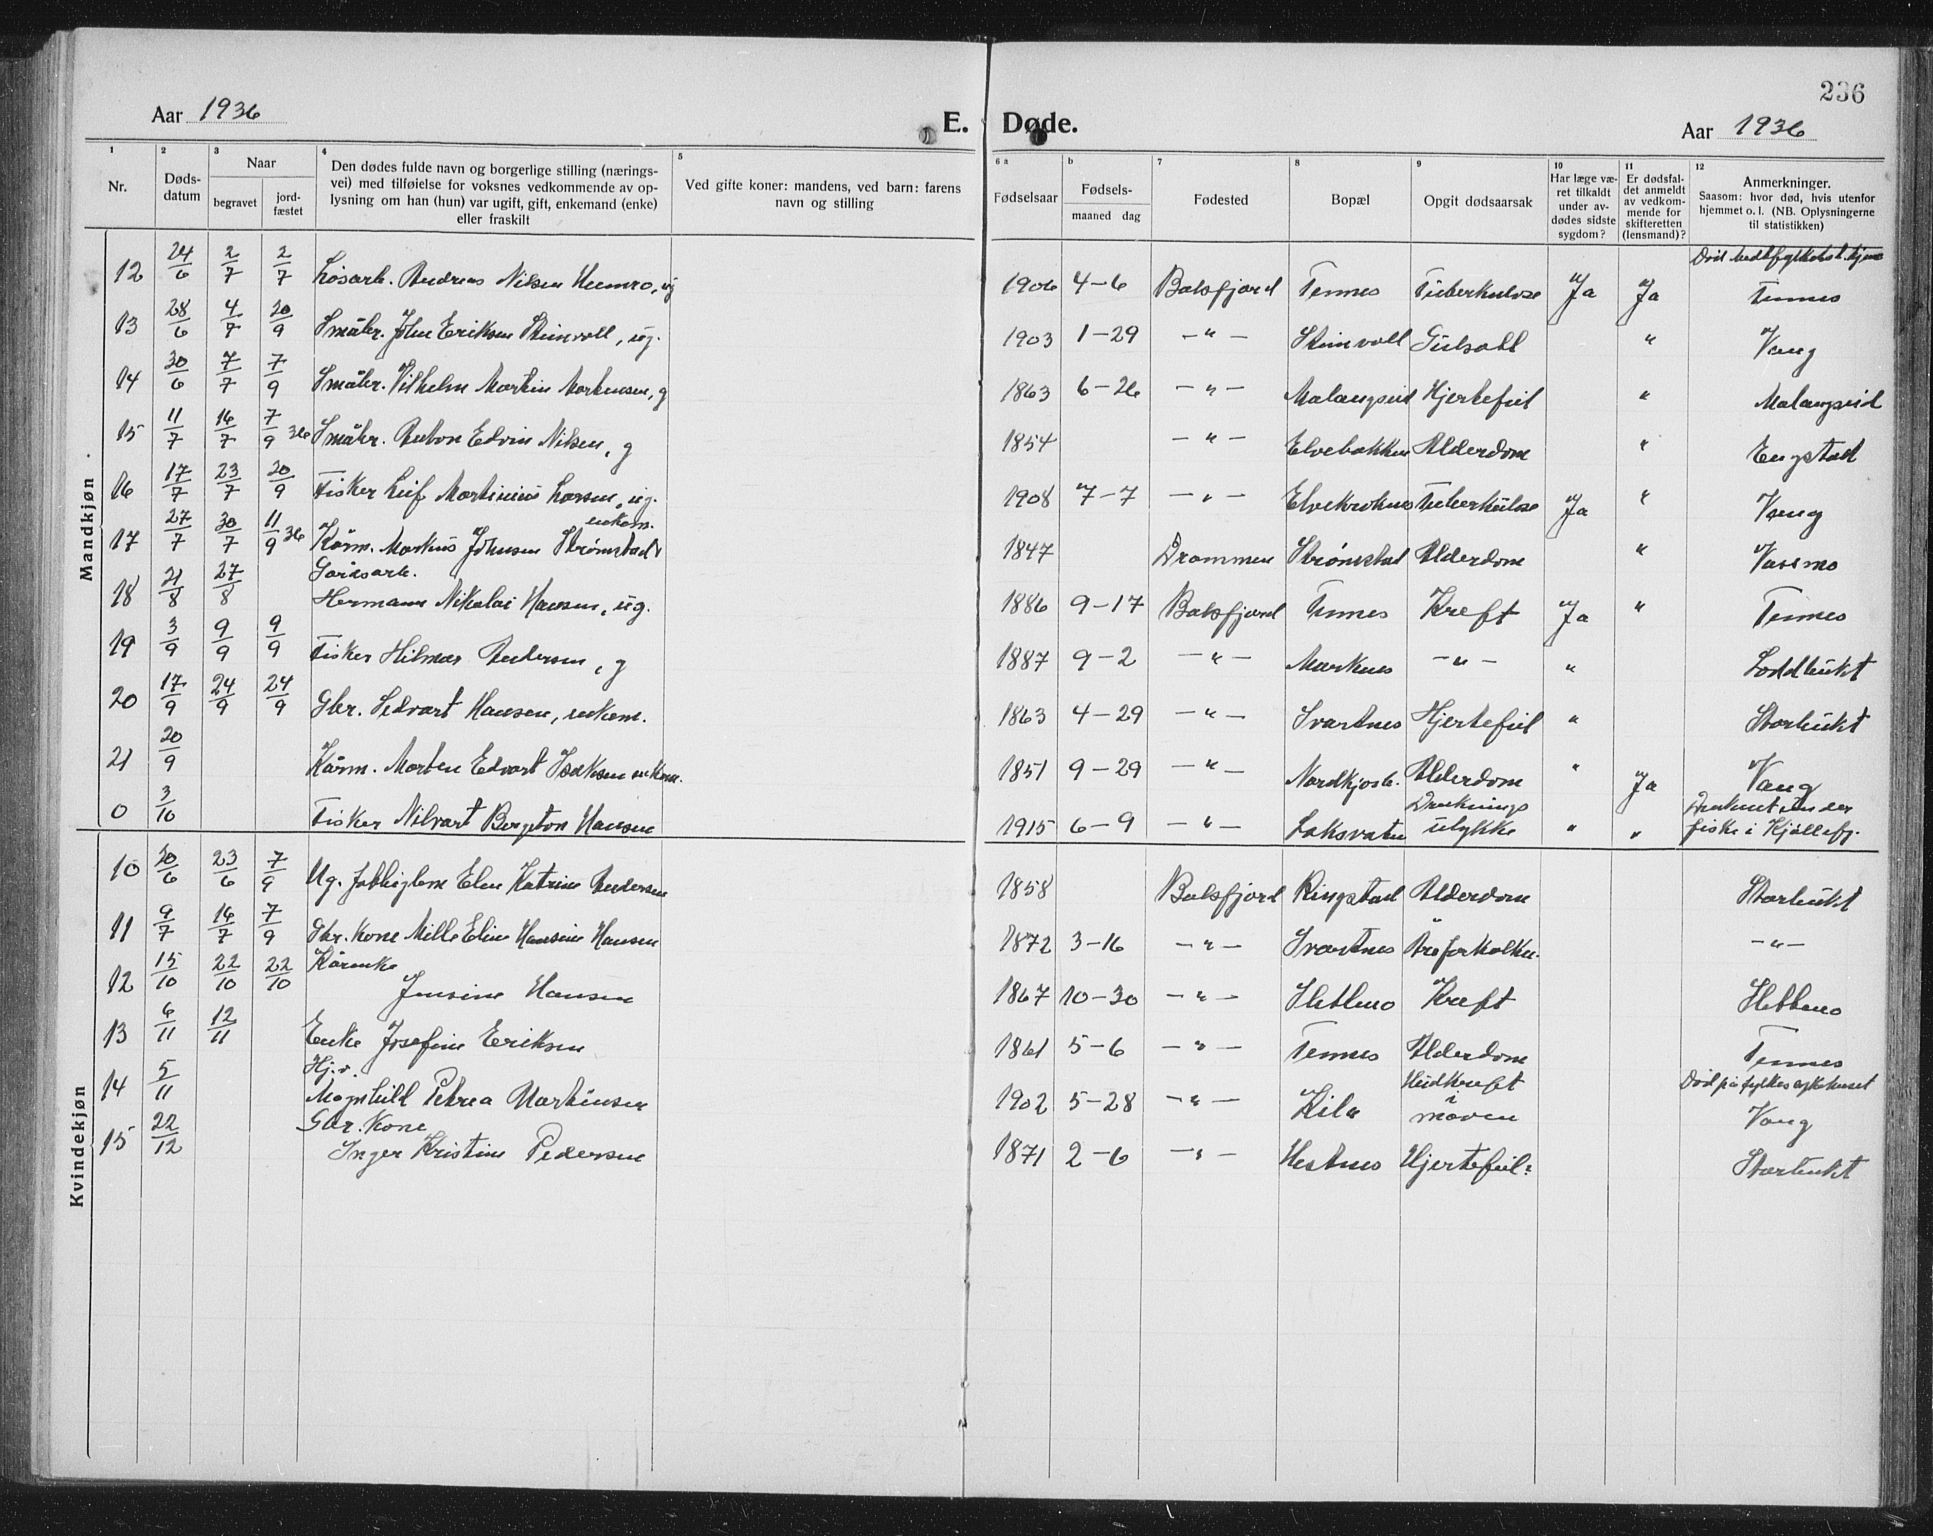 236
Aar 1936
E. Døde.
Aar 1936
1 2 3 4 5 6 a b 7 8 9 10 11 12
Nr.
Døds-
datum
Naar
begravet
jord-
fæstet
Den dødes fulde navn og borgerlige stilling (nærings-
vei) med tilføielse for voksnes vedkommende av op-
lysning om han (hun) var ugift, gift, enkemand (enke)
eller fraskilt
Ved gifte koner: mandens, ved barn: farens
navn og stilling
Fødselsaar
Fødsels-
maaned dag
Fødested
Bopæl
Opgit dødsaarsak
Har læge væ-
ret tilkaldt
under av-
dødes sidste
sygdom?
Er dødsfal-
det anmeldt
av vedkom-
mende for
skifteretten
(lensmand)?
Anmerkninger.
Saasom: hvor død, hvis utenfor
hjemmet o. l. (NB. Oplysningerne
til statistikken)
Mandkjøn
12 24/6 2/7 2/7 Løsarb. Andreas Nilsen ug 1906 4-6 Balsfjord Tennes Tuberkulose Ja Ja Tennes
13 28/6 4/7 20/9 Småbr. John Eriksen Stenvoll, ug. 1903 1-29 -"- Stenvoll " Vang
14 30/6 7/7 7/9 Småbr. Vilhelm Martin Mortensen, g 1863 6-26 -"- Malangseid Hjertefeil " Malangseid
15 11/7 16/7 7/9 36 Småbr. Anton Edvin Nilsen, g 1854 -"- Elvebakken Alderdom " Engstad
16 17/7 23/7 20/9 Fisker Leif Martinius Larsen, ug. 1908 7-7 -"- Elvekroken Tuberkulose Ja " Vang
17 27/7 30/7 11/9 36 Kårm. Markus Johnsen Strømstad, enkem. 1847 Drammen Strømstad Alderdom " Vassmo
18 21/8 27/8 Gårdsarb.
Hermann Nikolai Hansen, ug. 1886 9-17 Balsfjord Tennes Kreft Ja " Tennes
19 3/9 9/9 9/9 Fisker Hilmar Andersen, g 1887 9-2 -"- Marknes -"- " Loddbukt
20 17/9 24/9 24/9 Gbr. Sedvart Hansen, enkem. 1863 4-29 -"- Svartnes Hjertefeil " Storbukt
21 20/9 Kårm. Morten Edvart Isaksen enkem. 1851 9-29 -"- Nordkjosb. Alderdom " Ja Vang
0 3/10 Fisker Nilvart Bergeton Hansen 1915 6-9 -"- Laksvatn Druknings
ulykke " " Druknet under
fiske i Kjøllefj.
Kvindekjøn
10 20/6 23/6 7/9 Ug. Elen Katrine Andersen 1858 Balsfjord Ringstad Alderdom Storbukt
11 9/7 16/7 7/9 Gbr. kone Mille Eline Hansine Hansen 1872 3-16 -"- Svartnes Åreforkalkn. -"-
12 15/10 22/10 22/10 Kårenke
Jensine Hansen 1867 10-30 -"- Slettmo Kreft Slettmo
13 6/11 12/11 Enke Josefine Eriksen 1861 5-6 -"- Tennes Alderdom Tennes
14 5/11 Hj.v.
Magnhild Petrea Martinsen 1902 5-28 -"- Kila Hudkreft
i maven Død på fylkessykehuset
Vang
15 22/12 Gbr. kone
Inger Kristine Pedersen 1871 2-6 -"- Hestnes Hjertefeil Storbukt